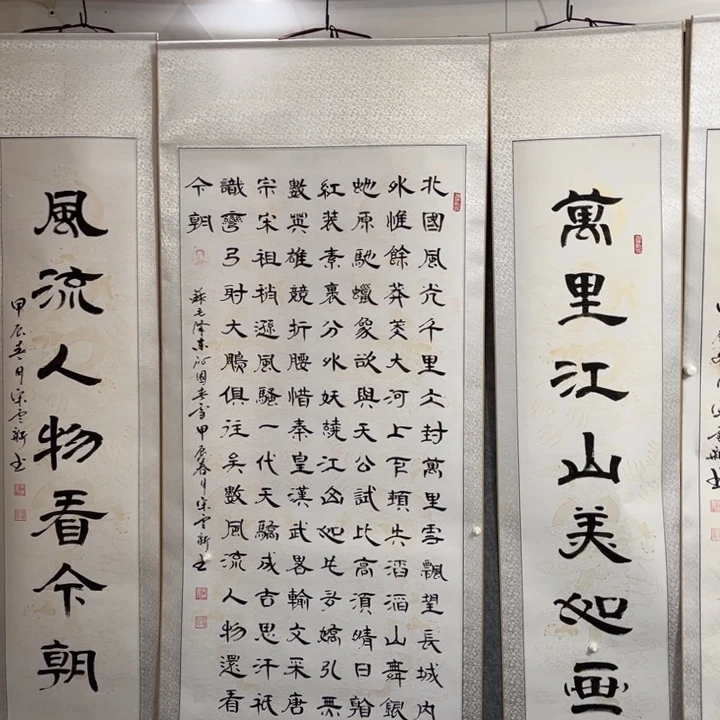 萬里江山美如画
北國風光千里冰封萬里雪飄望長城内
外惟餘莽莽大河上下頓失滔滔山舞銀
蛇原馳蠟象欲與天公試比高須晴日看
紅装素裹分外妖嬈江山如此多嬌引無
數英雄競折腰惜秦皇漢武畧輸文采唐
宗宋祖稍遜風騷一代天驕成吉思汗祇
識彎弓射大鵰俱往矣數風流人物還看
今朝
毛澤東沁園春雪甲辰春月宋雲新书
風流人物看今朝
甲辰春月宋雲新书